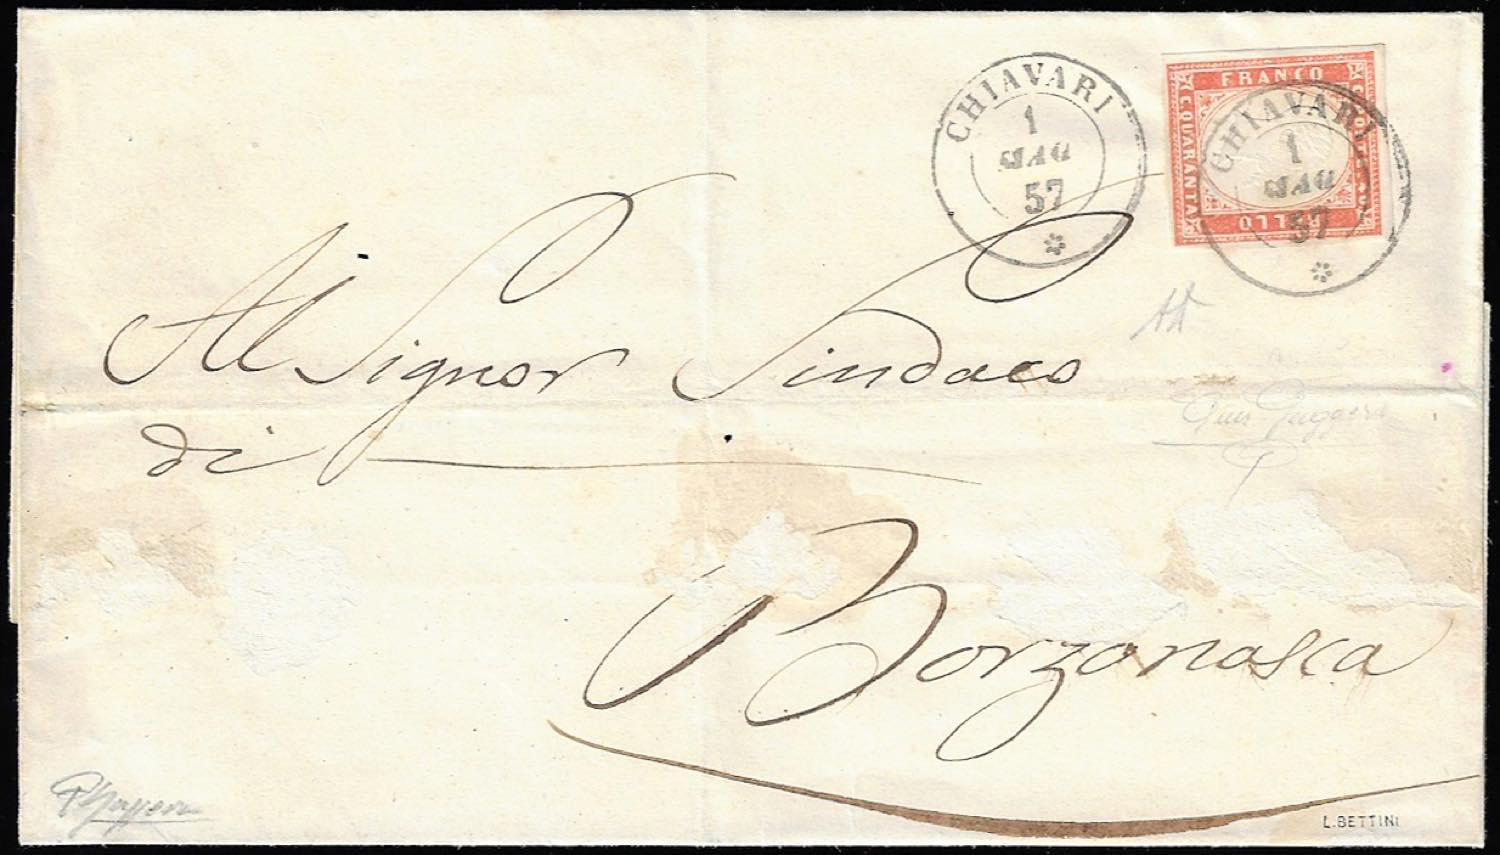 CHIAVARI
1
MAG
57
FRANCO
C. QUARANTA
BOLLO
CHIAVARI
1
MAG
57
Al Signor Sindaco
di
Borzonasca
L. BETTINI